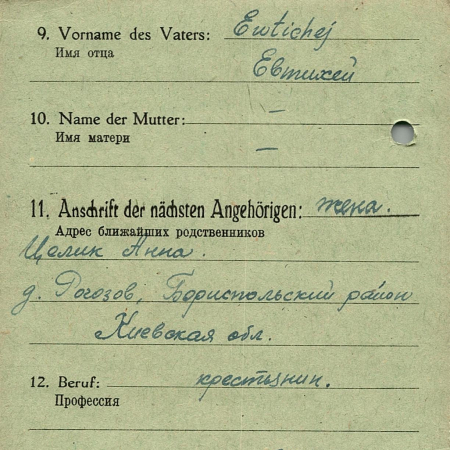 9. Vorname des Vaters: Ewtichej
Имя отца
Евтихей
10. Name der Mutter: –
Имя матери
–
11. Anschrift der nächsten Angehörigen: жена.
Адрес ближайших родственников
Целик Анна.
д. Рогозов, Бориспольский район
Киевская обл.
12. Beruf: крестьянин.
Профессия